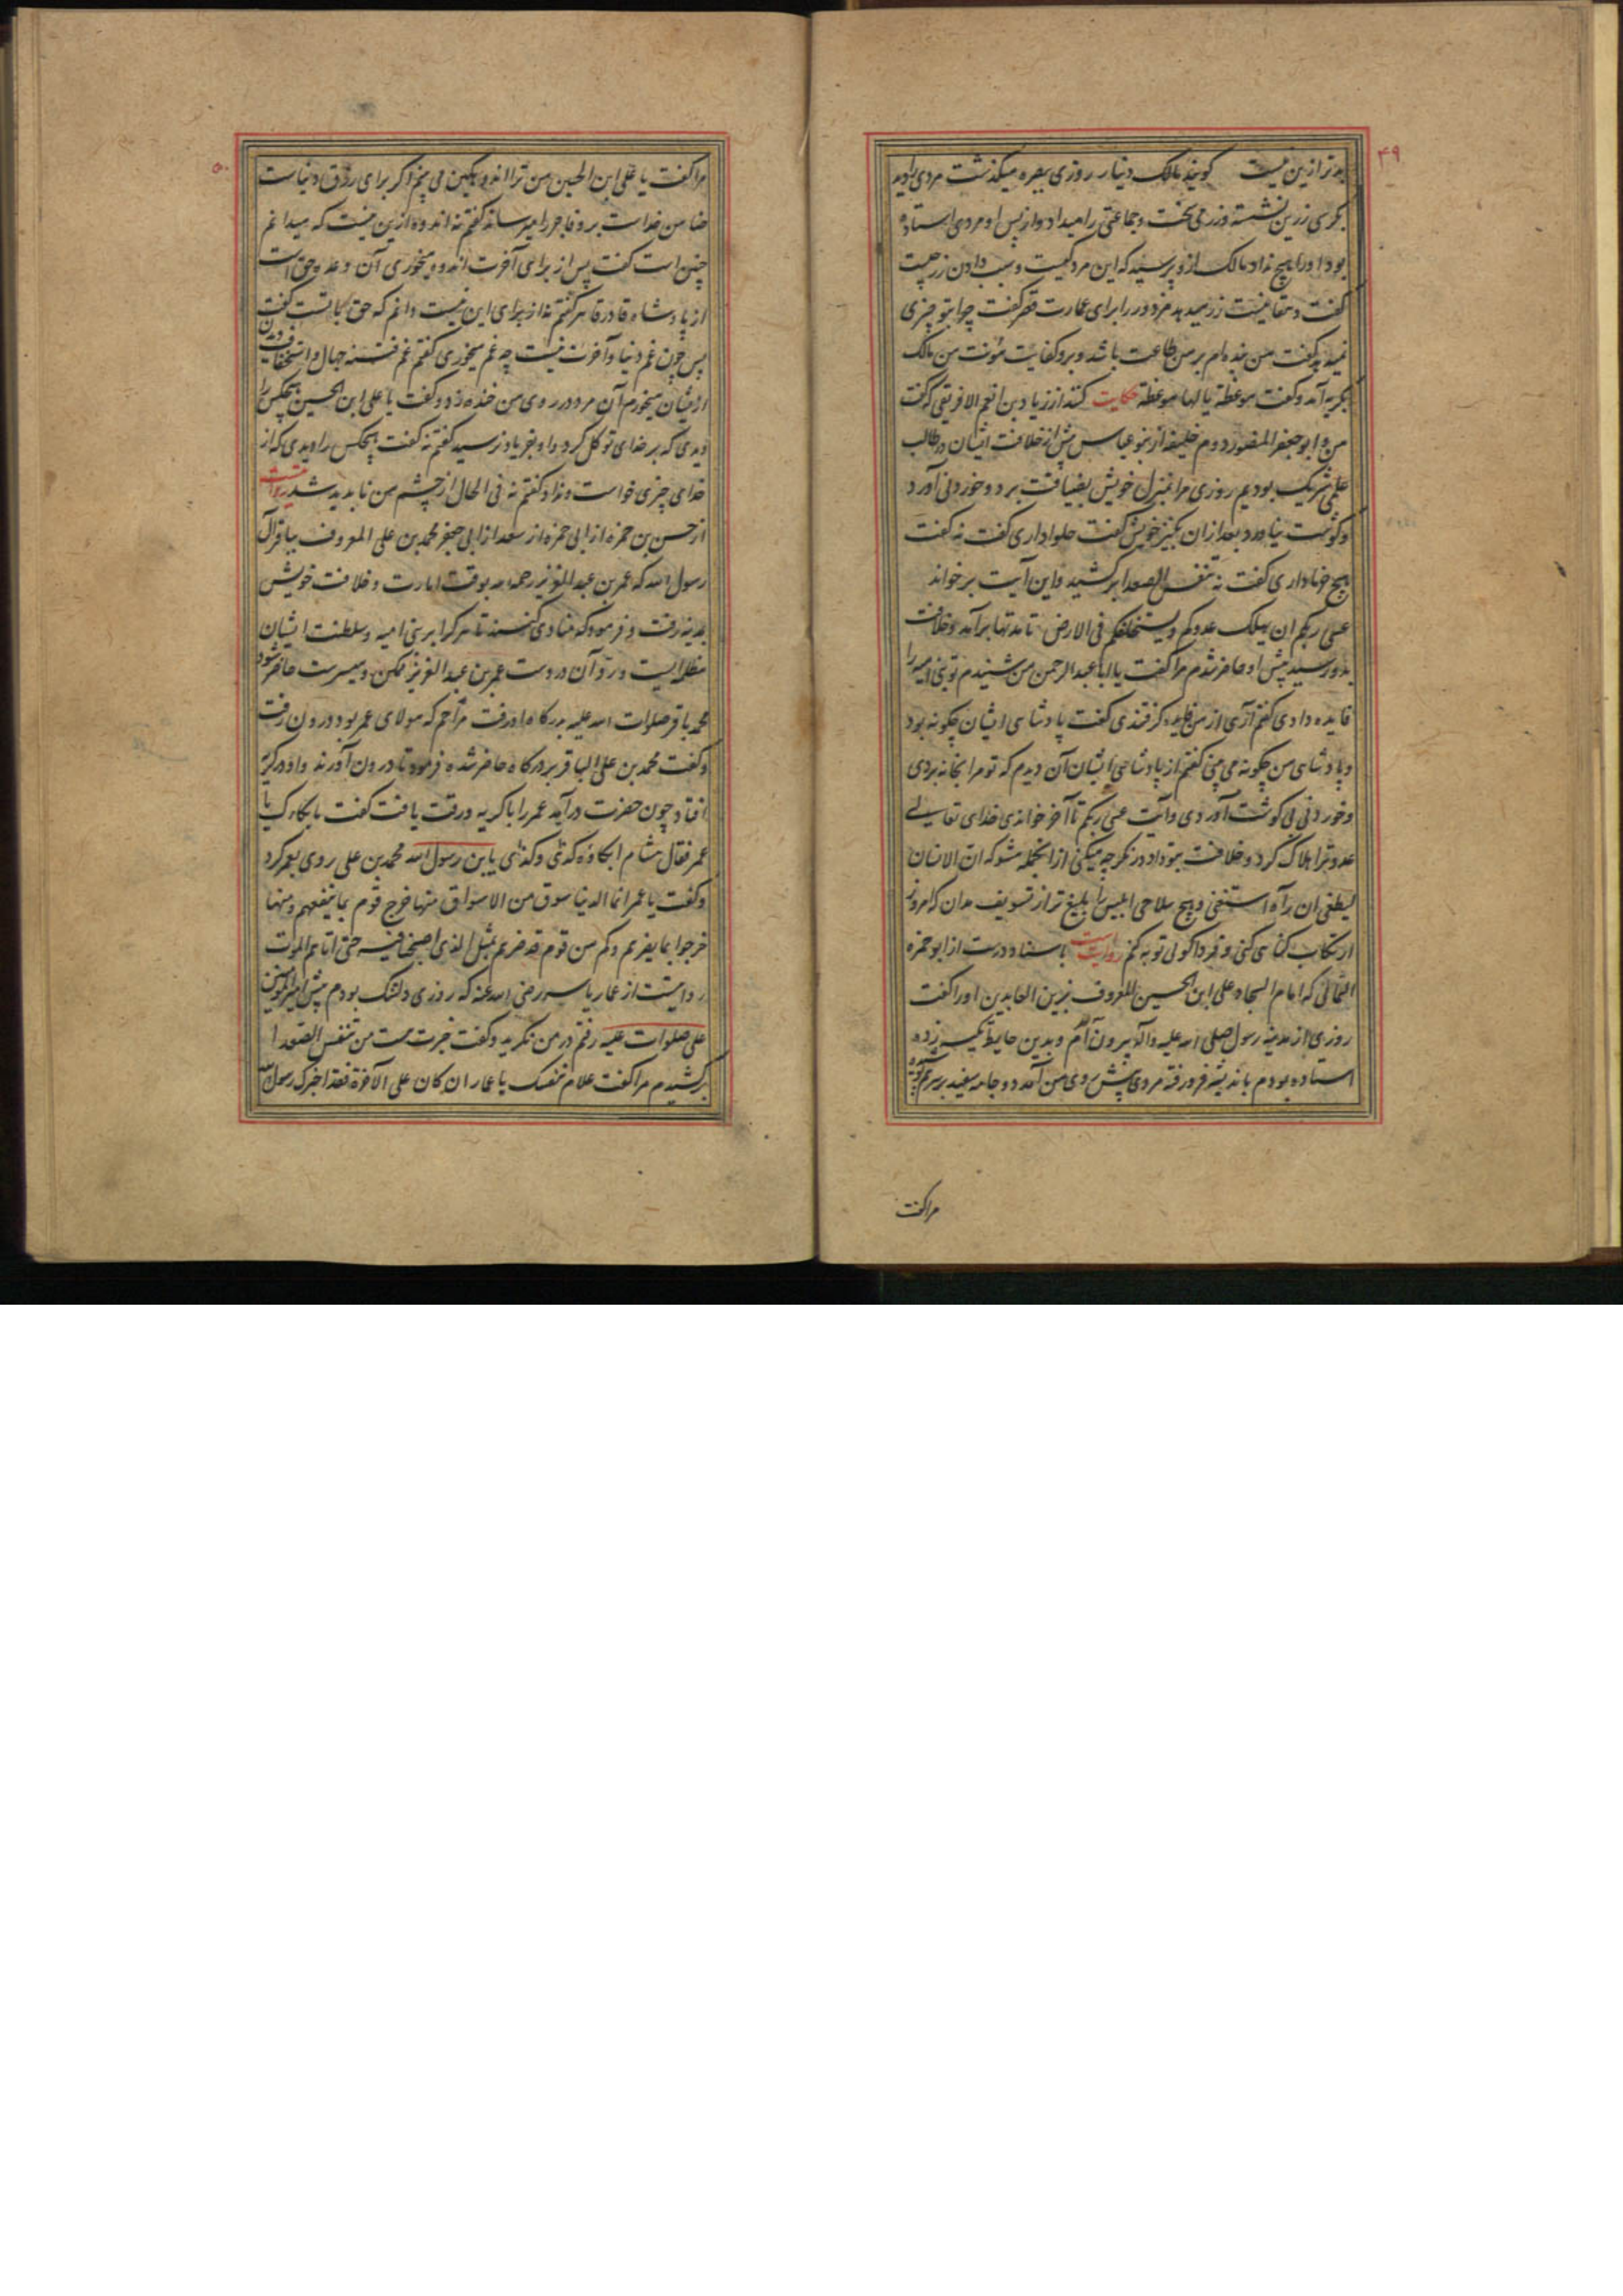 ۴۹
بدتر ازین نیست گویند مالک دینار روزی ببصره میگذشت مردی را دید
بکرسی زرین نشسته و زر می سخت و جماعتی را میداد و از پس او مردی استاده
بود او را هیچ نداد مالک ازو پرسید که این مرد کیست و سبب دادن زر چیست
گفت زر میدهد مزدور را برای عمارت قصر گفت چرا بتو چیزی
نمیدهد گفت من بنده ام بر من طاعت باشد و برو کفایت مؤنت من مالک
بگریه آمد و گفت موعظة یا لها موعظة حکایت کنند از زیاد بن انعم الافریقی که گفت
من و ابو جعفر المنصور دوم خلیفه از بنو عباس پیش از خلافت ایشان در طلب
علمی شریک بودیم روزی مرا بمنزل خویش بضیافت برد و خوردنی آورد
و گوشت نیاورد بعد ازان بکنیز خویش گفت حلوا داری گفت نه گفت
هیچ خرما داری گفت نه تنفس الصعدا برکشید و این آیت برخواند
عسی ربکم ان یهلک عدوکم و یستخلفکم فی الارض تا مدتها برآمد و خلافت
بدو رسید پیش او حاضر شدم مرا گفت یا ابا عبد الرحمن من شنیدم تو بنی امیه را
فایده دادی گفتم آری از من گرفتندی گفت پادشاهی ایشان چگونه بود
و پادشاهی من چگونه می بینی گفتم از پادشاهی ایشان آن دیدم که تو مرا بخانه بردی
و خوردنی بی گوشت آوردی و آیت عسی ربکم تا آخر خواندی خدای تعالی
عدو ترا هلاک کرد و خلافت بتو داد در نگر چه میکنی از آنجمله مشو که ان الانسان
لیطغی ان رآه استغنی و هیچ سلاحی ابلیس را بلیغ تر از تسویف مدان که امروز
ارتکاب گناهی کنی و فردا گوئی توبه کنم روایت است باسناد درست از ابو حمزه
الثمالی که امام السجاد علی ابن الحسین المعروف بزین العابدین او را گفت
روزی از مدینه رسول صلی الله علیه و آله بیرون آمدم و بدین حایط تکیه زده
استاده بودم باندیشه فرو رفته مردی پیش روی من آمد دو جامه سفید
مرا گفت
۵۰
مرا گفت یا علی ابن الحسین من ترا اندوهگین می بینم اگر برای رزق دنیاست
ضامن خداست بر و فاجر را میرساند گفتم نه اندوه ازین نیست که میدانم
چنین است گفت پس از برای آخرت اندوه میخوری آن وعده حق است
از پادشاه قادر قاهر گفتم نه از برای این نیست دانم که حق بجانب تست گفت
پس چون غم دنیا و آخرت نیست چه غم میخوری گفتم غم فتنه جهال و استخفاف دین
ازیشان میخورم آن مرد در روی من خنده زد و گفت یا علی ابن الحسین هیچکس را
دیدی که بر خدای توکل کرد و او بفریاد نرسید گفتم نه گفت هیچکس را دیدی که از
خدای چیزی خواست و نداد گفتم نه فی الحال از چشم من ناپدید شد روایتست
از حسن بن حمزه از ابی حمزه از سعد از ابی جعفر محمد بن علی المعروف بباقر آل
رسول الله که عمر بن عبد العزیز رحمه الله بوقت امارت و خلافت خویش
بمدینه رفت و فرمود که منادی کنند تا هر کرا بر بنی امیه و سلطنت ایشان
مظلمه ایست و رد آن در دست عمر بن عبد العزیز ممکن و میسرست حاضر شود
محمد باقر صلوات الله علیه بدرگاه او رفت مزاحم که مولای عمر بود درون رفت
و گفت محمد بن علی الباقر بدرگاه حاضر شده فرمود تا درون آورند و او در گریه
افتاد چون حضرت درآمد عمر را با گریه و رقت یافت گفت ما بکاک یا
عمر فقال هشام ابکاه کذی و کذی یابن رسول الله محمد بن علی روی بعمر کرد
و گفت یا عمر انما الدنیا سوق من الاسواق منها خرج قوم بما ینفعهم و منها
خرجوا بما یضرهم و کم من قوم قد ضرهم بمثل الذی اصبحنا فیه حتی اتاهم الموت
روایتست از عمار یاسر رضی الله عنه که روزی دلتنگ بودم پیش امیر المؤمنین
علی صلوات علیه رفتم در من نگرید و گفت خبرت چیست من تنفس الصعدا
برکشیدم مرا گفت علام تنفسک یا عمار ان کان علی الآخرة فقد اخبرک رسول الله